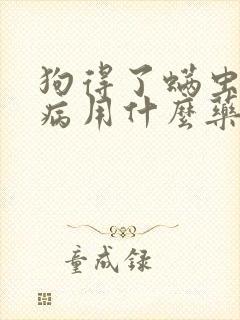 狗得了螨虫
病用什麼藥
童成録